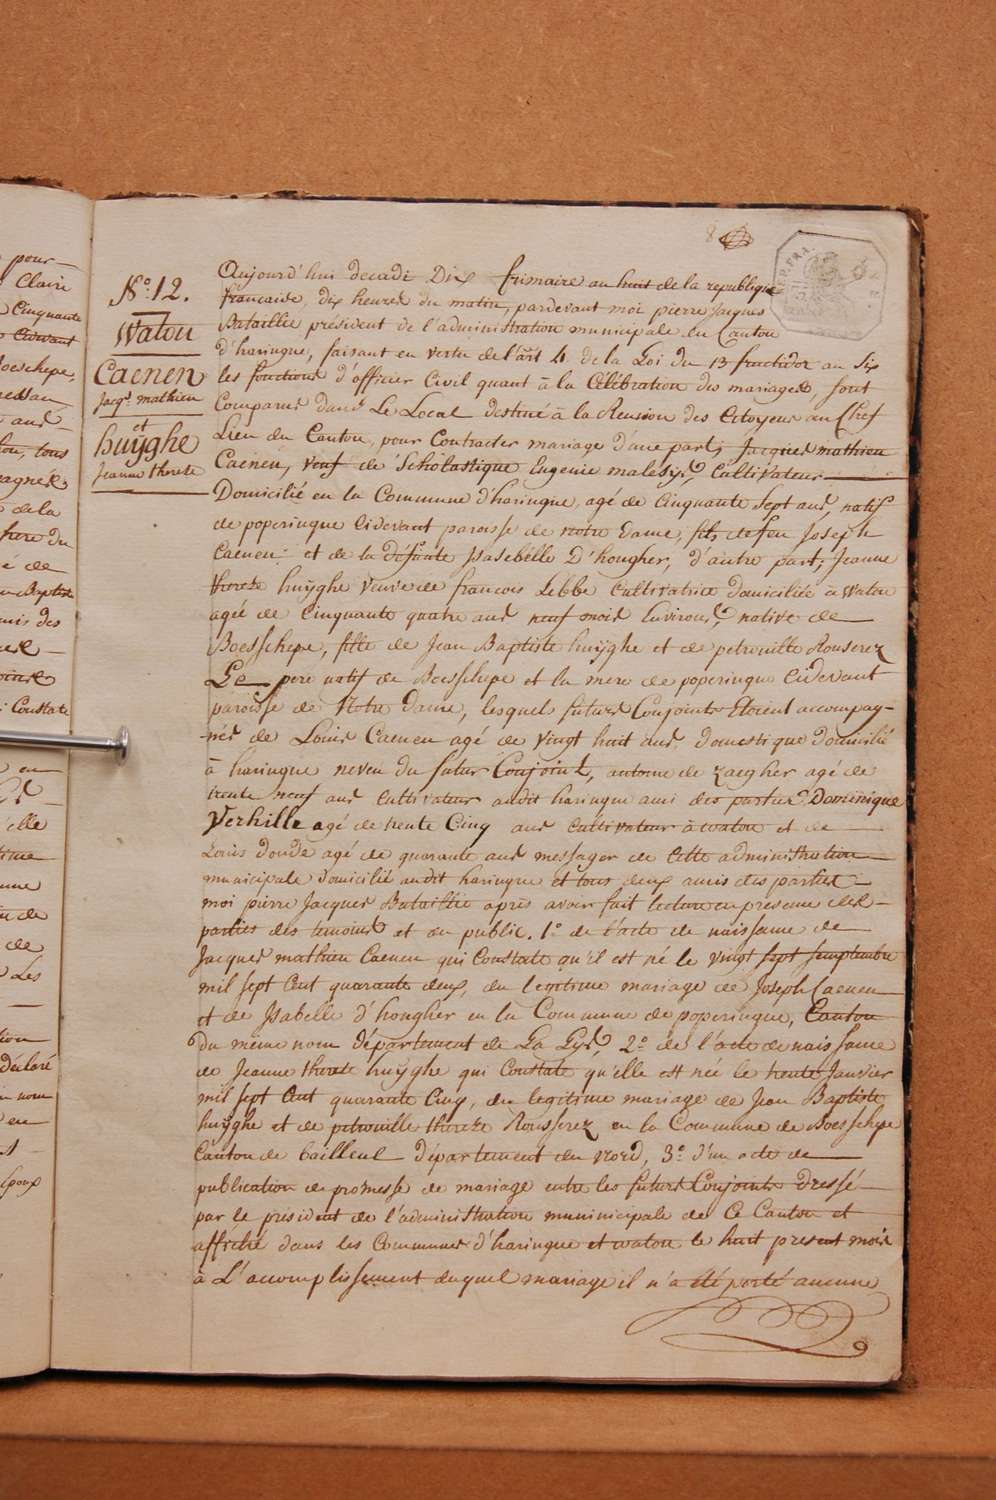 pour
Claire
Cinquante
Boeschepe,
tous
de la
du
é de
Baptiste
mis des
Constate
en
elle
de
de
Les
déclaré
nom
en
Epoux
8
No. 12.
Watou
Caenen
Jacqs. mathieu
et
huÿghe
Jeanne therese
Aujourd'hui decadi Dix frimaire an huit de la republique
francaise, dix heures du matin, pardevant moi pierre Jacques
Bataillie président de l'administration municipale du Canton
d'haringue, faisant en vertu de l'art 4 de la Loi du 13 fructidor an Six
les fonctions d'officier Civil quant à la Célébration des mariages, sont
Comparus dans Le Local destiné à la Reunion des Citoyens au Chef
Lieu du Canton, pour Contracter mariage d'une part, Jacques mathieu
Caenen, veuf de Scholastique Eugenie malesys, Cultivateur
Domicilié en la Commune d'haringue, agé de Cinquante Sept ans, natif
de poperingue Cidevant paroisse de notre Dame, fils de feu Joseph
Caenen: et de la défunte Isasebélle D'hongher, d'autre part, Jeanne
therese huÿghe veuve de francois Lebbe Cultivatrice domiciliée à Watou
agée de Cinquante quatre ans neuf mois Environs, native de
Boesschepe, fille de Jean Baptiste huÿghe et de petronille Rouserez
Le pere natif de Boesschepe et la mere de poperingue Cidevant
paroisse de Notre dame, lesquels futurs Conjoints Etoient accompag-
-nés de Louis Caenen agé de vingt huit ans, domestique domicilié
à haringue neveu du futur Conjoint, antoine de zaegher agé de
trente neuf ans Cultivateur audit haringue ami des parties, Dominique
Verhille agé de trente Cinq ans Cultivateur à watou et de
Louis doude agé de quarante ans messager de Cette administration
municipale domicilié audit haringue et tous deux amis des parties
moi pierre Jacques Bataillie après avoir fait lecture en presence des
parties des temoins et du public. 1o. de l'acte de naissance de
Jacques mathieu Caenen qui Constate qu'il est né le vingt sept semptembre
mil sept Cent quarante deux, du legitime mariage de Joseph Caenen
et de Isabelle d'hongher en la Commune de poperingue, Canton
Du même nom département de La Lys, 2o. de l'acte de naissance
de Jeanne therese huÿghe qui Constate qu'elle est née le trente Janvier
mil sept Cent quarante Cinq, du legitime mariage de Jean Baptiste
huÿghe et de petronille therese Rousserez en la Commune de Boesschepe
Canton de bailleul département du Nord, 3o. d'un acte de
publication de promesse de mariage entre les futurs Conjoints dressé
par le président de l'administration muninicipale de Ce Canton et
affiché dans les Communes d'haringue et watou le huit present mois
à L'accomplissement duquel mariage il n'a été porté aucune